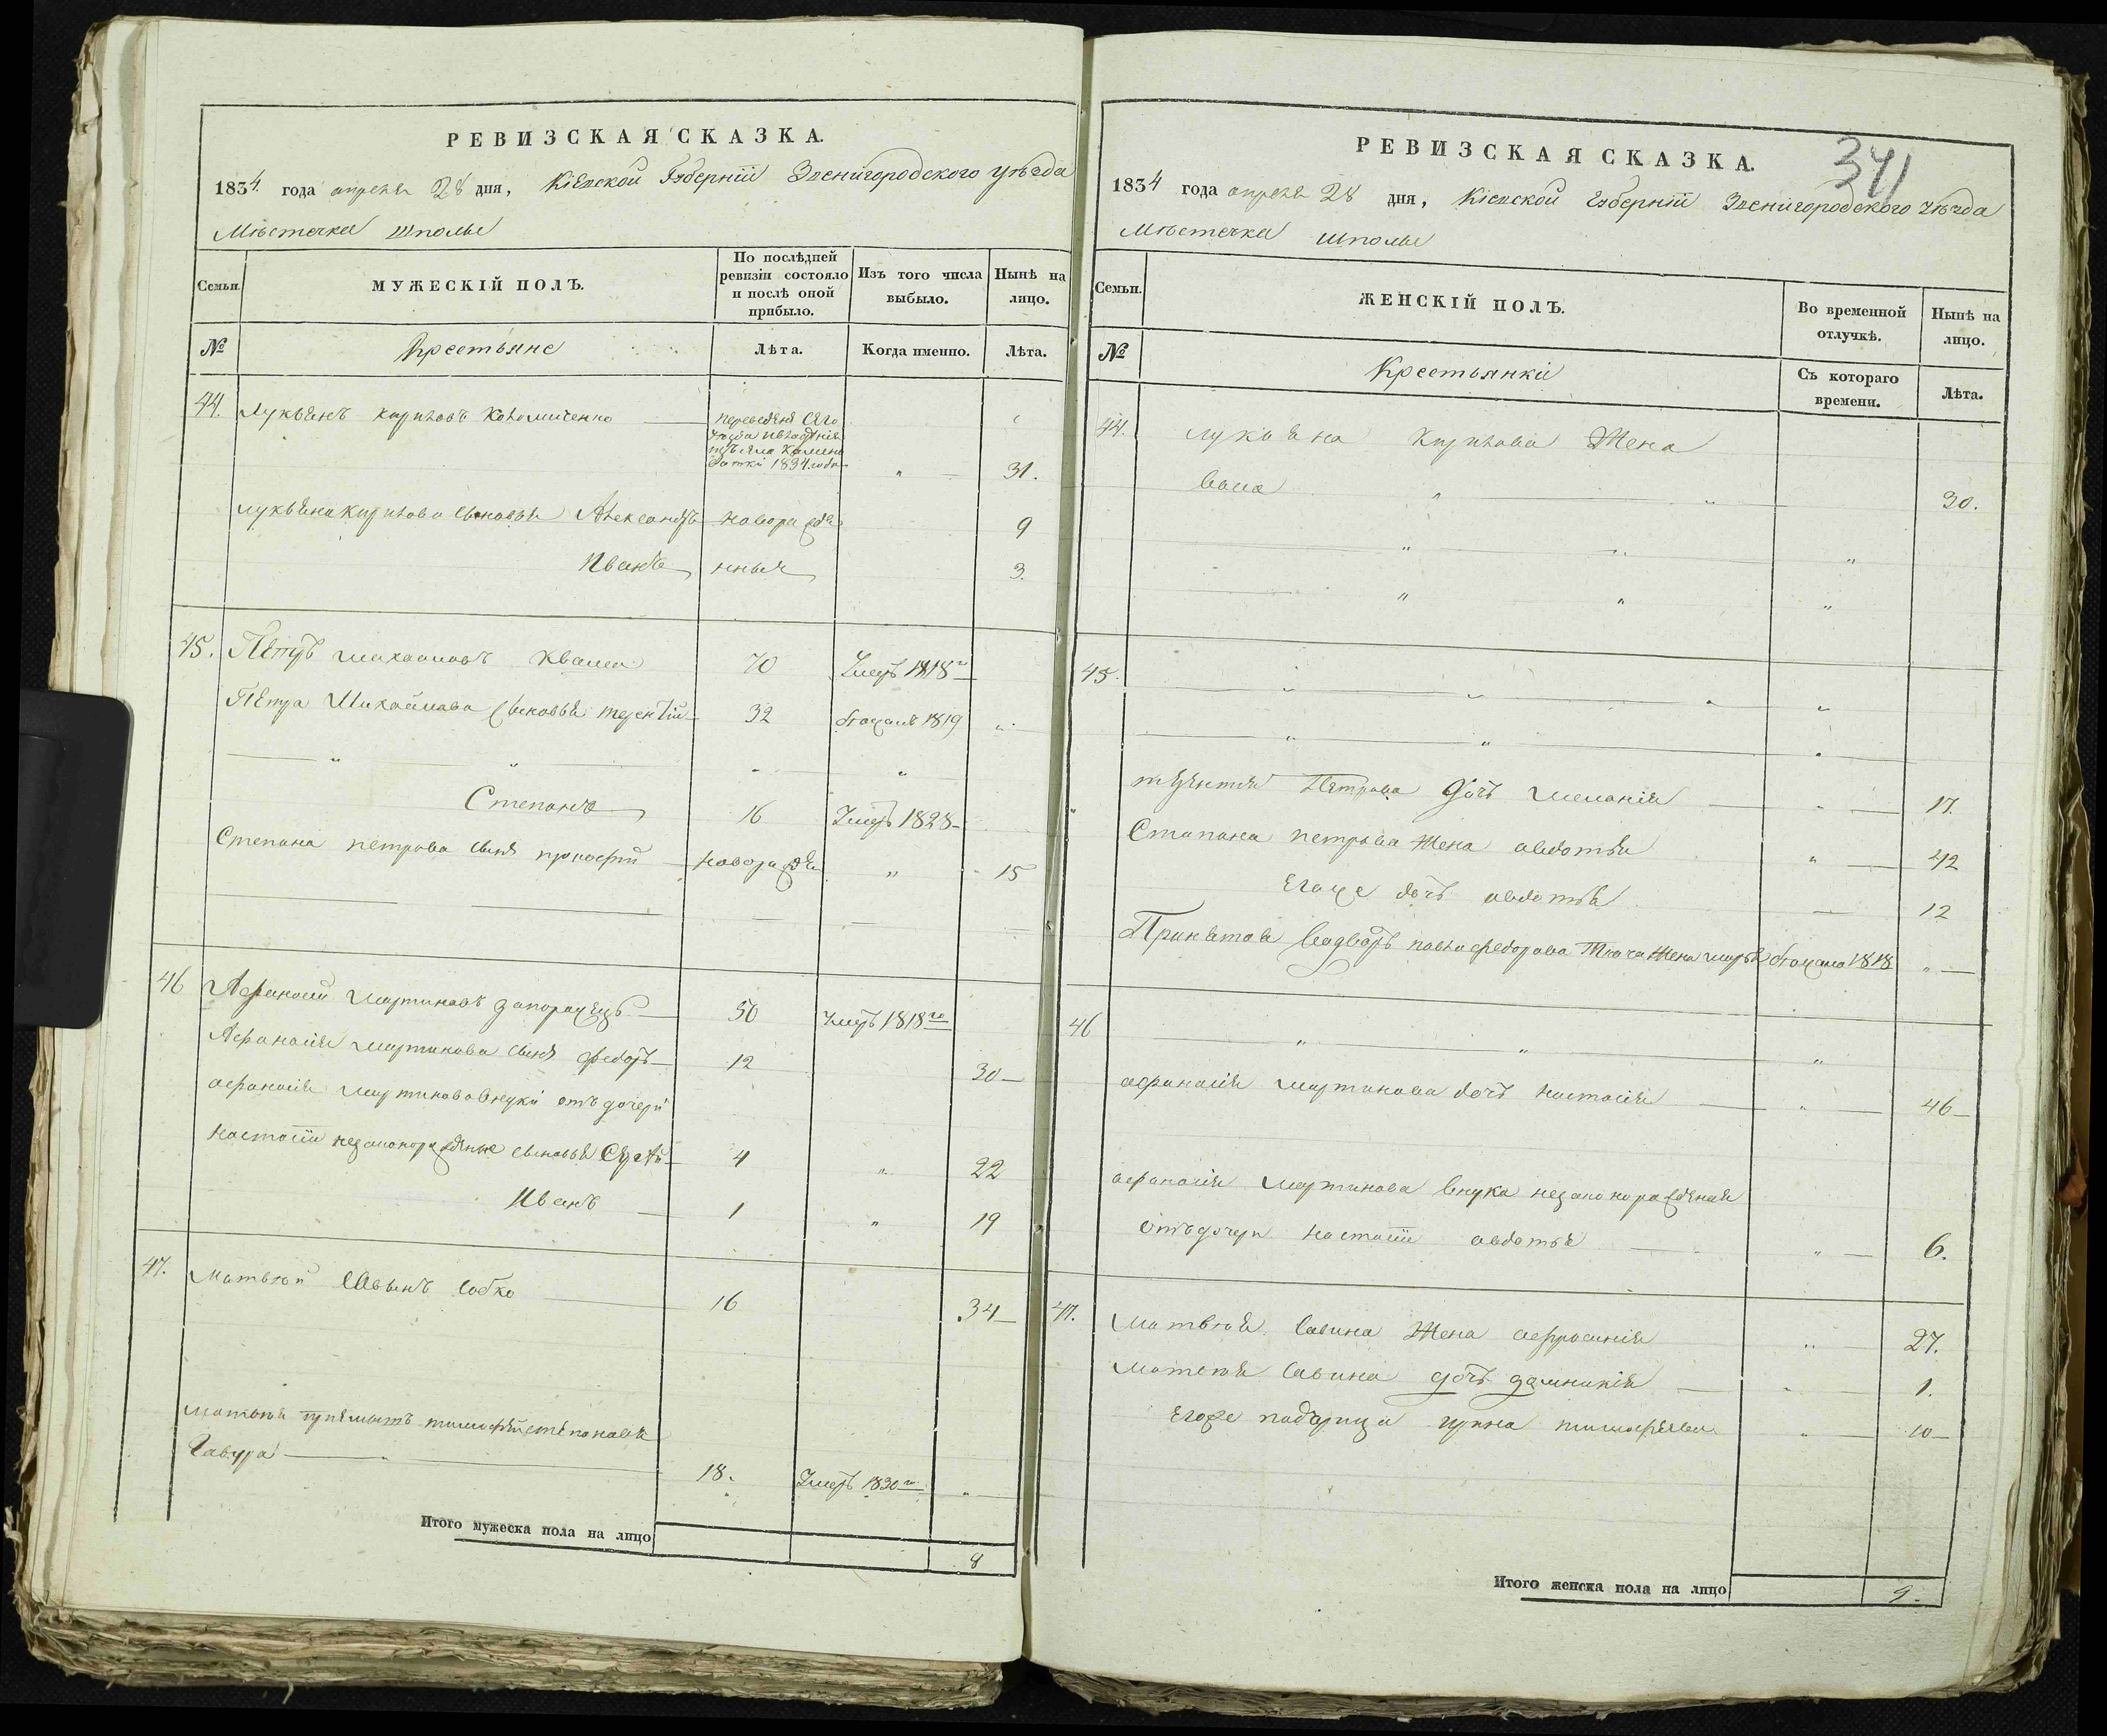 РЕВИЗСКАЯ СКАЗКА.
1834. года апреля 28 дня, Кіевской Губерніи Звенигородского уѣзда
Мѣстечка Шполы
Семьи.
МУЖЕСКІЙ ПОЛЪ.
По послѣдней ревизіи состояло и послѣ оной прибыло.
Изъ того числа выбыло.
Нынѣ на лицо.
№
Крестьяне
Лѣта.
Когда именно.
Лѣта.
44. Лукьянъ Кириловъ Коломиченко
переведенъ сего
уезда
1834 года " 31.
Лукьяна Кирилова сыновья Александръ новорожде 9
Иванъ нныя 3.
45. Петръ Михайловъ Кваша 70 Умеръ 1818го
Петра Михайлова сыновья Терентій 32 1819 "
" " " "
Степанъ 16 Умеръ 1828
Степана Петрова сынъ Прокофій новорожде " 15
46 Афанасій Мартиновъ Запорожецъ 50 Умеръ 1818го
Афанасія Мартинова сынъ Федоръ 12 30
Афанасія Мартинова внуки отъ дочери
Настасіи незаконорожденые сыновья Сергѣй 4 " 22
Иванъ 1 " 19
47. Матвѣй Савинъ Собко 16 34
Матвѣя Тимофей Степановъ
18. Умеръ 1830го "
Итого мужеска пола на лицо 8
341
РЕВИЗСКАЯ СКАЗКА.
1834 года апреля 28 дня, Кіевской Губерніи Звенигородского уѣзда
Мѣстечка Шполы
Семьи.
ЖЕНСКІЙ ПОЛЪ.
Во временной отлучкѣ.
Нынѣ на лицо.
№
Крестьянки
Съ котораго времени.
Лѣта.
44. Лукьяна Кирилова Жена
" " 30.
" " "
" " "
45. " " " "
" " "
Терентія Петрова дочь Меланія " 17.
Степана Петрова Жена Авдотья " 42
Егоже дочь Авдотья 12
Принятой Федорова Жена 1818 "
46 " " "
Афанасія Мартинова дочь Настасія " 46
Афанасія Мартинова внука незаконорожденая
отъ дочери Настасіи Авдотья " 6.
47. Матвѣя Савина Жена Афросинія " 27.
Матвѣя Савина дочь " 1.
Егоже падчерица " 10
Итого женска пола на лицо 9.